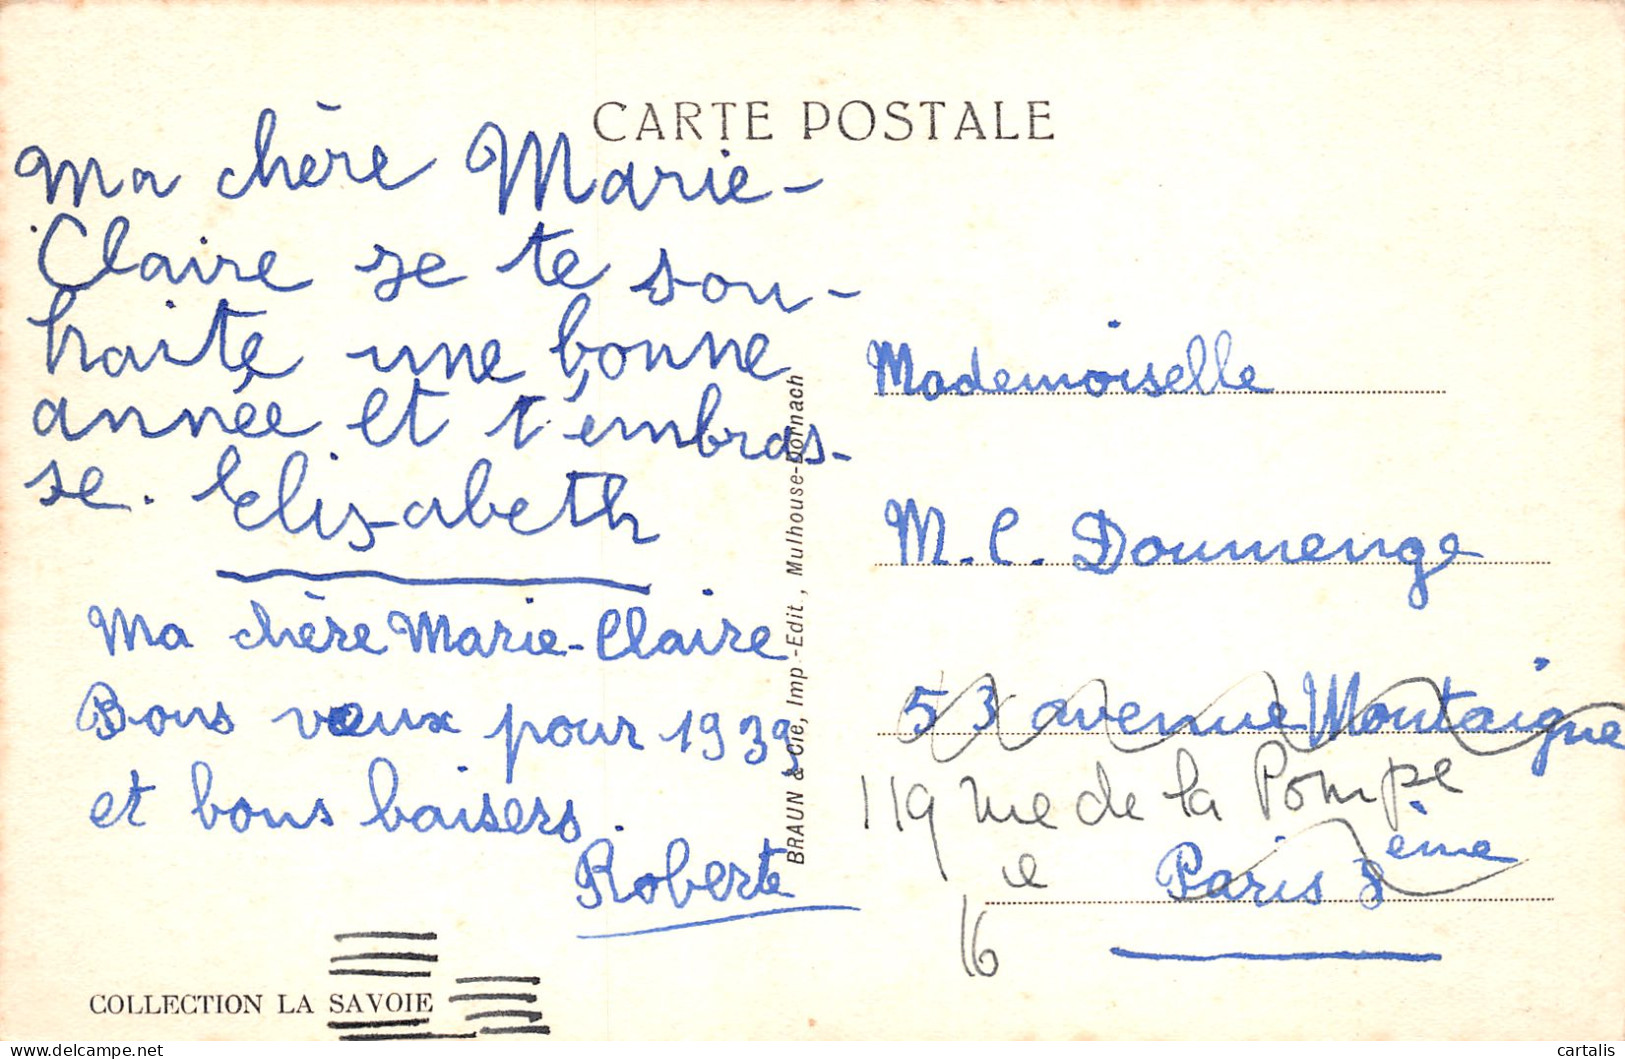 CARTE POSTALE
Ma chère Marie-
Claire je te sou-
haite une bonne
année et t'embras-
se. Elisabeth
Ma chère Marie-Claire
Bons vœux pour 1939
et bons baisers.
Roberte
COLLECTION LA SAVOIE
BRAUN & Cie, Imp.-Edit., Mulhouse-Dornach
Mademoiselle
M. C. Doumenge
53 avenue Montaigne
119 rue de la Pompe
Paris 8ème
16e
cartalis
delcampe.net